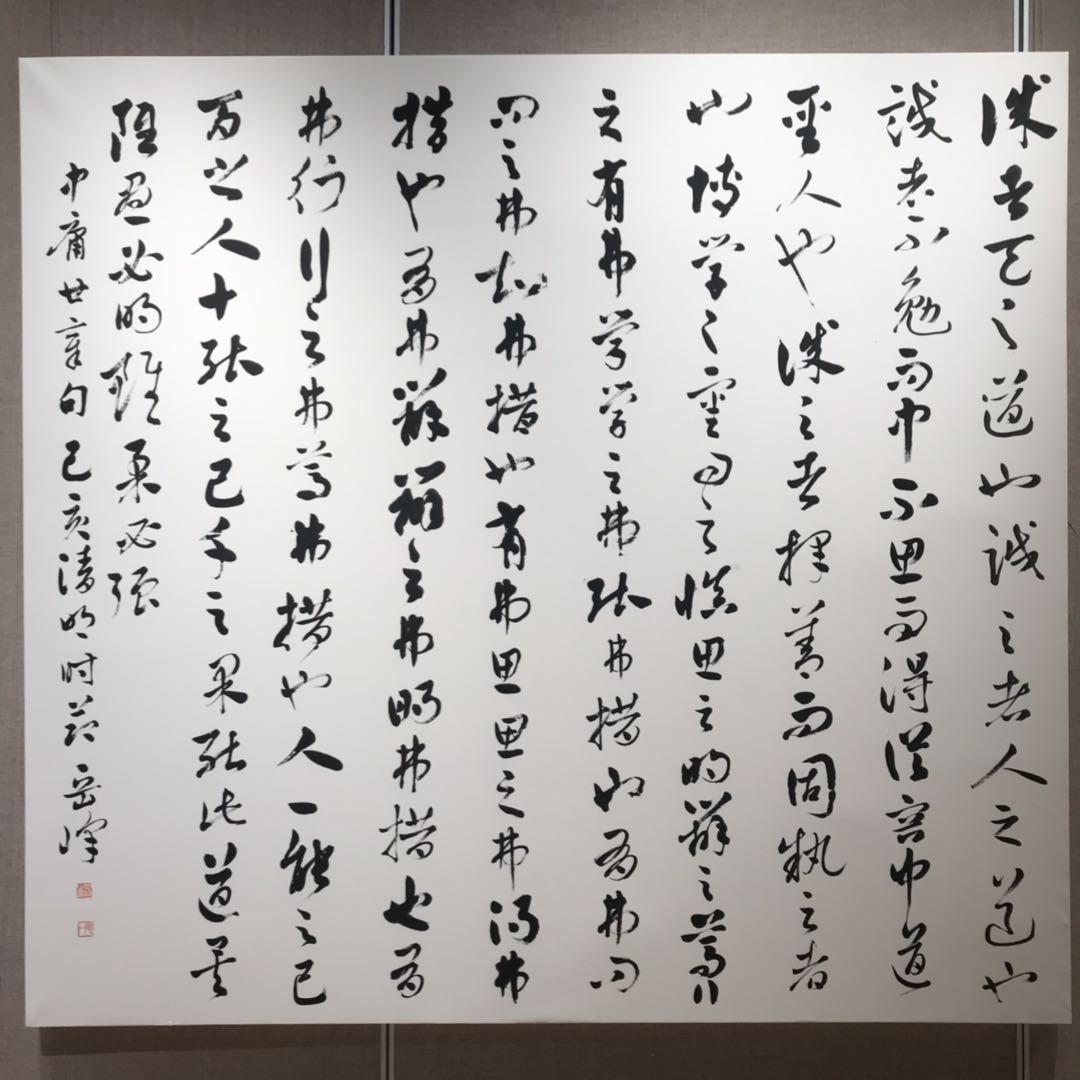 誠者天之道也誠之者人之道也
誠者不勉而中不思而得從容中道
聖人也誠之者擇善而固執之者
也博学之審問之慎思之明辨之篤行
之有弗学学之弗能弗措也有弗問
問之弗知弗措也有弗思思之弗得弗
措也有弗辨辨之弗明弗措也有
弗行行之弗篤弗措也人一能之己
百之人十能之己千之果能此道矣
雖愚必明雖柔必强
中庸廿章句己亥清明时节岳峰